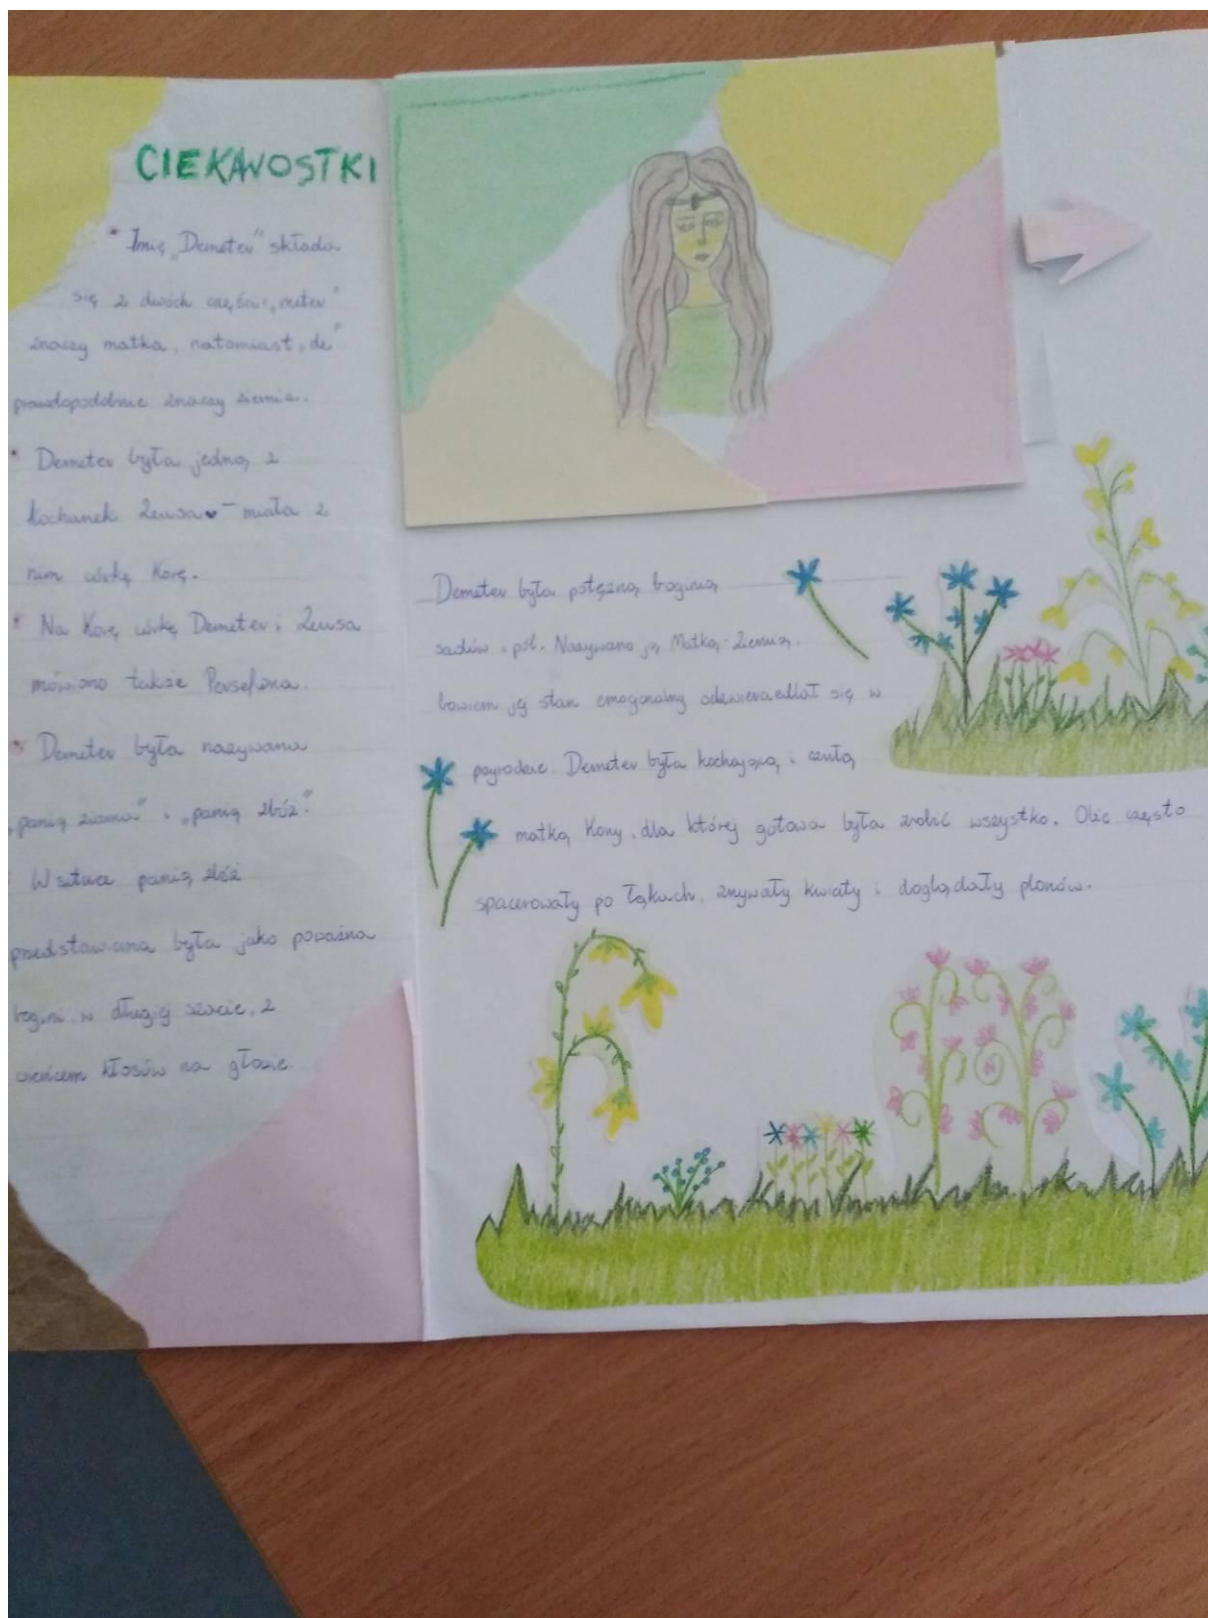 CIEKAWOSTKI
* Imię „Demeter" składa
się z dwóch części: „meter"
znaczy matka, natomiast „de"
prawdopodobnie znaczy ziemia.
* Demeter była jedną z
kochanek Zeusa ♥ – miała z
nim córkę Korę.
* Na Korę córkę Demeter i Zeusa
mówiono także Persefona.
* Demeter była nazywana
„panią ziarna" i „panią zbóż".
W sztuce panią zbóż
przedstawiana była jako poważna
bogini w długiej szacie, z
wieńcem kłosów na głowie.
Demeter była potężną boginią
sadów i pól. Nazywano ją Matką-Ziemią,
bowiem jej stan emocjonalny odzwieraedlał się w
przyrodzie. Demeter była kochającą i czułą
matką Kory, dla której gotowa była zrobić wszystko. Obie często
spacerowały po łąkach, zrywały kwiaty i doglądały plonów.